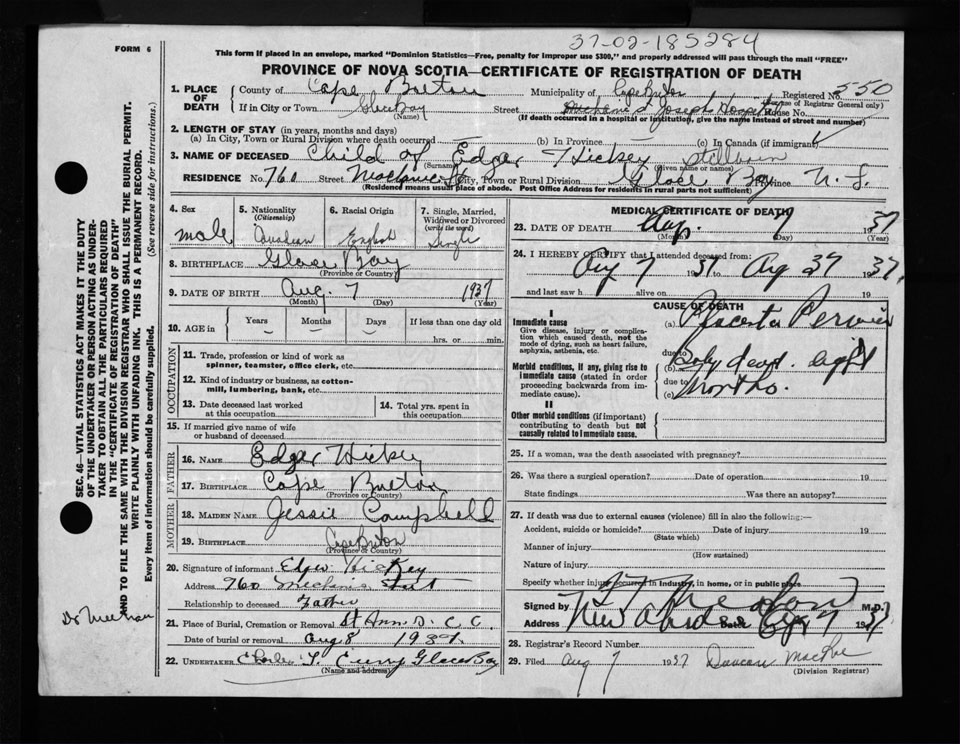 37-02-185284
FORM 6
This form if placed in an envelope, marked "Dominion Statistics—Free, penalty for improper use $300," and properly addressed will pass through the mail "FREE"
PROVINCE OF NOVA SCOTIA—CERTIFICATE OF REGISTRATION OF DEATH
1. PLACE OF DEATH
County of Cape Breton Municipality of Cape Breton Registered No. 550
(For use of Registrar General only)
If in City or Town Glace Bay Street St Joseph Hospital House No.
(Name) (If death occurred in a hospital or institution, give the name instead of street and number)
2. LENGTH OF STAY (in years, months and days)
(a) In City, Town or Rural Division where death occurred (b) In Province (c) In Canada (if immigrant)
3. NAME OF DECEASED Child of Edgar Hickey Stillborn
(Surname) (Given name or names)
RESIDENCE No. 760 Street Mechanic St City, Town or Rural Division Glace Bay Province N. S.
(Residence means usual place of abode. Post Office Address for residents in rural parts not sufficient)
4. Sex
male
5. Nationality
(Citizenship)
Canadian
6. Racial Origin
English
7. Single, Married, Widowed or Divorced
(write the word)
Single
8. BIRTHPLACE Glace Bay
(Province or Country)
9. DATE OF BIRTH Aug. 7 1937
(Month) (Day) (Year)
10. AGE in Years Months Days If less than one day old
hrs. or min.
OCCUPATION
11. Trade, profession or kind of work as
spinner, teamster, office clerk, etc.
12. Kind of industry or business, as cotton-
mill, lumbering, bank, etc.
13. Date deceased last worked
at this occupation
14. Total yrs. spent in
this occupation
15. If married give name of wife
or husband of deceased
FATHER
16. NAME Edgar Hickey
17. BIRTHPLACE Cape Breton
(Province or Country)
MOTHER
18. MAIDEN NAME Jessie Campbell
19. BIRTHPLACE Cape Breton
(Province or Country)
20. Signature of informant Edgar Hickey
Address 760 Mechanic Street
Relationship to deceased Father
21. Place of Burial, Cremation or Removal St Ann's C. C.
Date of burial or removal Aug 8 1937
22. UNDERTAKER Charles T. Curry Glace Bay
(Name and address)
MEDICAL CERTIFICATE OF DEATH
23. DATE OF DEATH Aug. 7 1937
(Month) (Day) (Year)
24. I HEREBY CERTIFY that I attended deceased from:
Aug 7 1937 to Aug 37 1937
and last saw h alive on 19
CAUSE OF DEATH
I
Immediate cause
Give disease, injury or complica-
tion which caused death, not the
mode of dying, such as heart failure,
asphyxia, asthenia, etc.
(a) Placenta
due to
Morbid conditions, if any, giving rise to
immediate cause (stated in order
proceeding backwards from im-
mediate cause).
(b) eight
due to
(c) months.
II
Other morbid conditions (if important)
contributing to death but not
causally related to immediate cause.
25. If a woman, was the death associated with pregnancy?
26. Was there a surgical operation? Date of operation 19
State findings Was there an autopsy?
27. If death was due to external causes (violence) fill in also the following:—
Accident, suicide or homicide? Date of injury 19
(State which)
Manner of injury
(How sustained)
Nature of injury
Specify whether injury occurred in industry, in home, or in public place
Signed by M.D.
Address New Aberdeen Date Aug 7 1937
28. Registrar's Record Number
29. Filed Aug 7 1937 Duncan MacRae
(Division Registrar)
SEC. 46—VITAL STATISTICS ACT MAKES IT THE DUTY
OF THE UNDERTAKER OR PERSON ACTING AS UNDER-
TAKER TO OBTAIN ALL THE PARTICULARS REQUIRED
IN THE "CERTIFICATE OF REGISTRATION OF DEATH"
AND TO FILE THE SAME WITH THE DIVISION REGISTRAR WHO SHALL ISSUE THE BURIAL PERMIT.
WRITE PLAINLY WITH UNFADING INK. THIS IS A PERMANENT RECORD.
Every item of information should be carefully supplied. (See reverse side for instructions.)
Dr